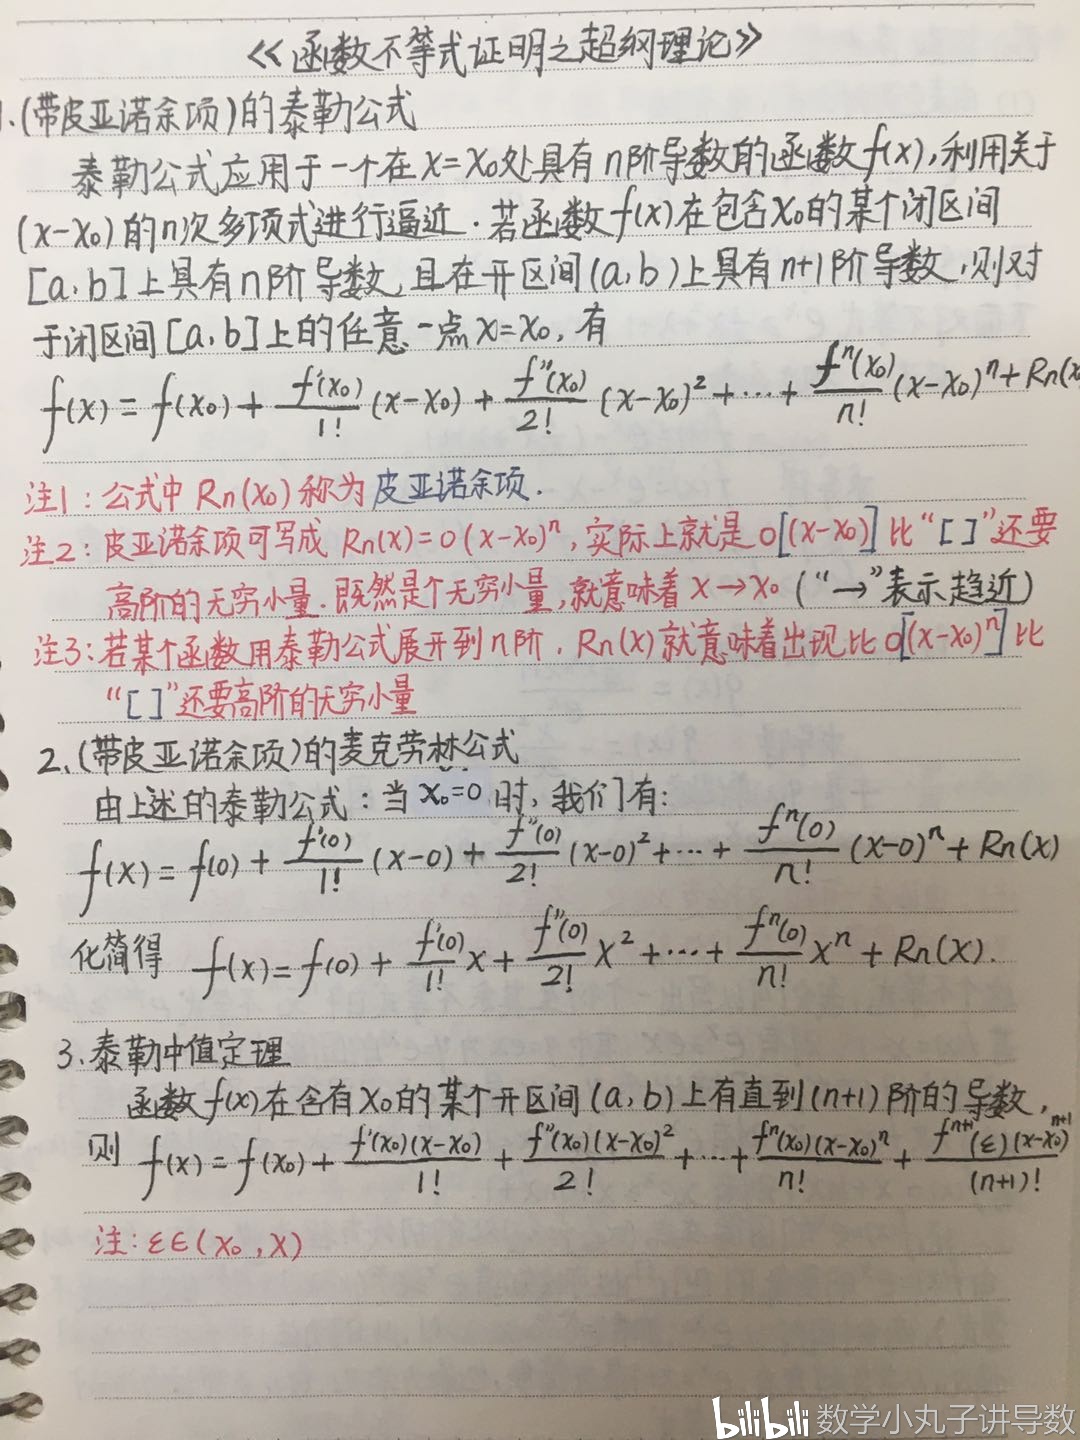 《函数不等式证明之超纲理论》
1.(带皮亚诺余项)的泰勒公式
泰勒公式应用于一个在x=x₀处具有n阶导数的函数f(x),利用关于
(x-x₀)的n次多项式进行逼近.若函数f(x)在包含x₀的某个闭区间
[a,b]上具有n阶导数,且在开区间(a,b)上具有n+1阶导数,则对
于闭区间[a,b]上的任意一点x=x₀,有
f(x)=f(x₀)+f'(x₀)/1!(x-x₀)+f''(x₀)/2!(x-x₀)²+…+fⁿ(x₀)/n!(x-x₀)ⁿ+Rn(x
注1:公式中Rn(x₀)称为皮亚诺余项.
注2:皮亚诺余项可写成Rn(x)=o(x-x₀)ⁿ,实际上就是o[(x-x₀)]比“[ ]”还要
高阶的无穷小量.既然是个无穷小量,就意味着x→x₀(“→”表示趋近)
注3:若某个函数用泰勒公式展开到n阶,Rn(x)就意味着出现比o[(x-x₀)ⁿ]比
“[ ]”还要高阶的无穷小量
2.(带皮亚诺余项)的麦克劳林公式
由上述的泰勒公式:当x₀=0时,我们有:
f(x)=f(0)+f'(0)/1!(x-0)+f''(0)/2!(x-0)²+…+fⁿ(0)/n!(x-0)ⁿ+Rn(x)
化简得 f(x)=f(0)+f'(0)/1!x+f''(0)/2!x²+…+fⁿ(0)/n!xⁿ+Rn(x).
3.泰勒中值定理
函数f(x)在含有x₀的某个开区间(a,b)上有直到(n+1)阶的导数,
则 f(x)=f(x₀)+f'(x₀)(x-x₀)/1!+f''(x₀)(x-x₀)²/2!+…+fⁿ(x₀)(x-x₀)ⁿ/n!+fⁿ⁺¹(ε)(x-x₀)ⁿ⁺¹/(n+1)!
注:ε∈(x₀,x)
bilibili 数学小丸子讲导数